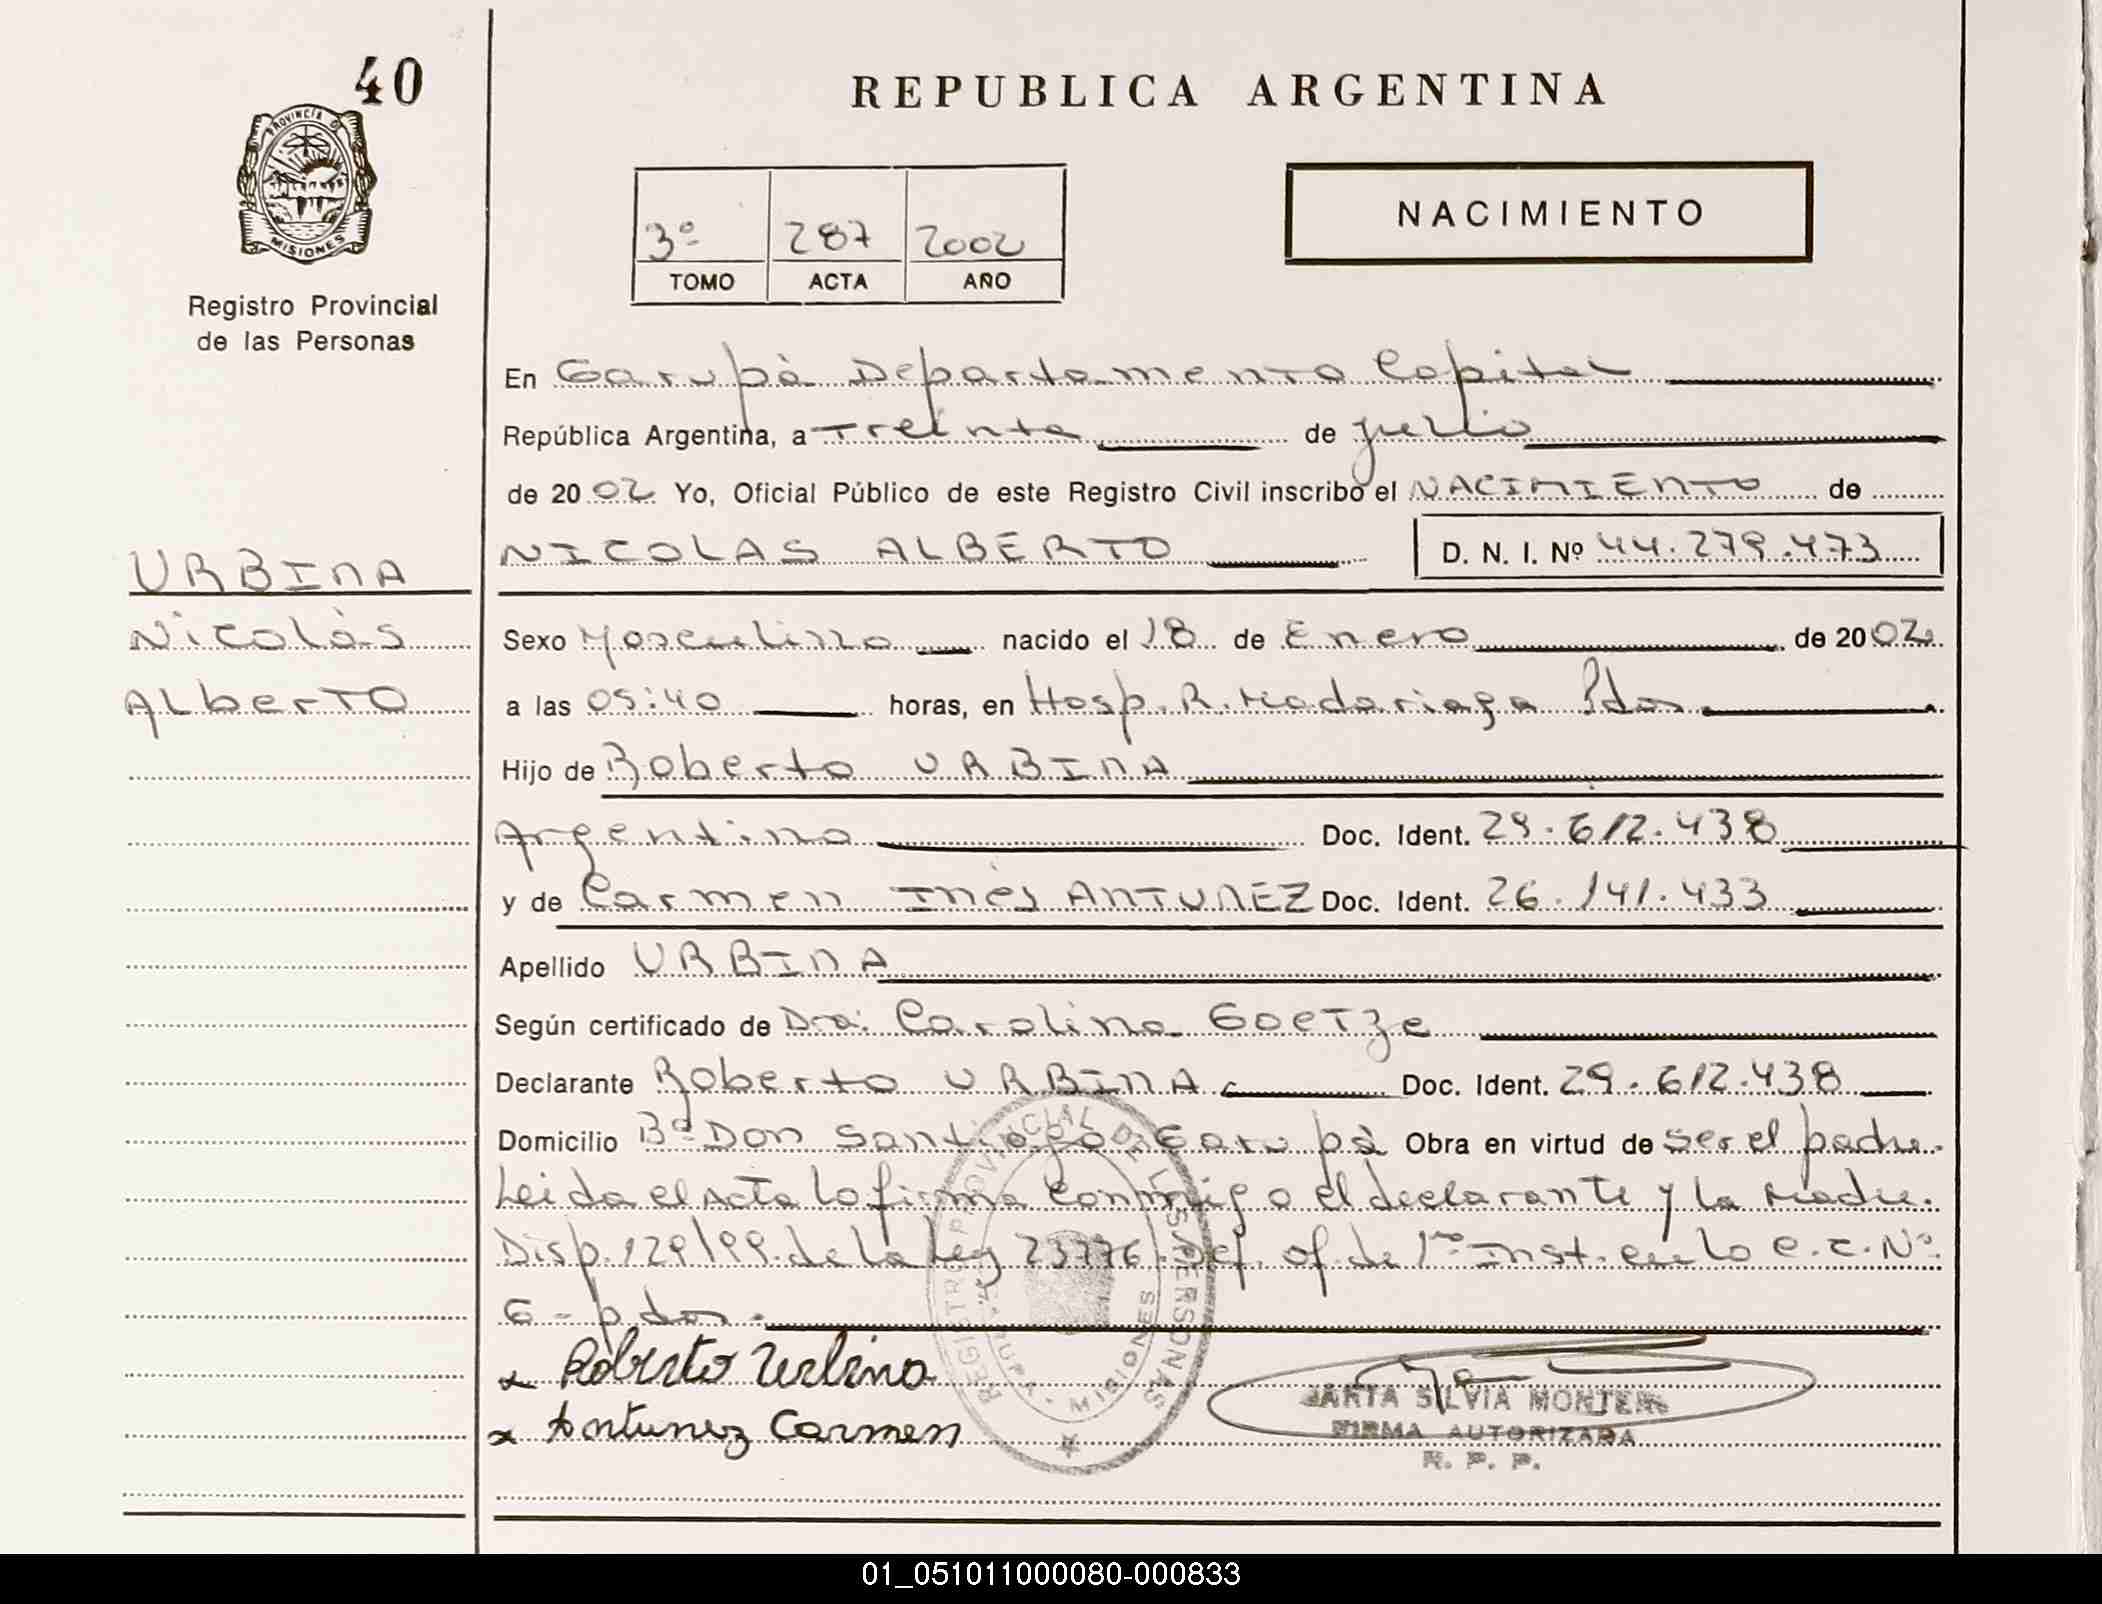 40
PROVINCIA DE
MISIONES
Registro Provincial
de las Personas
URBINA
Nicolás
Alberto
REPUBLICA ARGENTINA
3º 287 2002
TOMO ACTA AÑO
NACIMIENTO
En Garupá Departamento Capital
República Argentina, a Treinta de julio
de 2002 Yo, Oficial Público de este Registro Civil inscribo el NACIMIENTO de
NICOLAS ALBERTO D. N. I. Nº 44.279.473
Sexo Masculino nacido el 18 de Enero de 2002
a las 05:40 horas, en Hosp. R. Madariaga Pdas.
Hijo de Roberto URBINA
Argentino Doc. Ident. 29.612.438
y de Carmen Inés ANTUNEZ Doc. Ident. 26.141.433
Apellido URBINA
Según certificado de Dra. Carolina Goetze
Declarante Roberto URBINA Doc. Ident. 29.612.438
Domicilio Bº Don Santiago Garupá Obra en virtud de ser el padre.
Leida el Acta lo firma conmigo el declarante y la Madre.
Disp. 129/99 de la Ley 23776. Def. of. de 1ra Inst. en lo C. C. Nº
6 - pdas.
x Roberto Urbina
x Antunez Carmen
REGISTRO PROVINCIAL DE LAS PERSONAS
MISIONES
SILVIA
FIRMA AUTORIZADA
R. P. P.
01_051011000080-000833